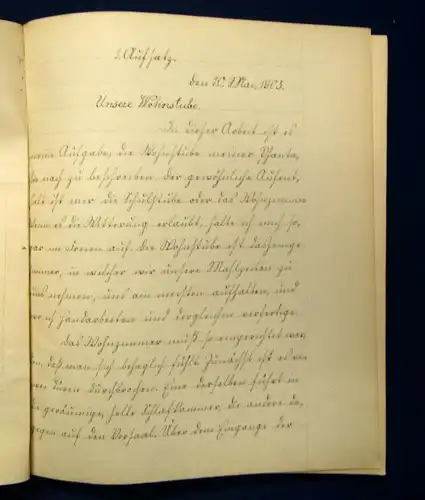 2. Aufsatz.
den 20. Mai, 1903.
Unsere Wohnstube.
In dieser Arbeit ist es
meine Aufgabe, die Wohnstube meiner
nach zu beschreiben. Der gewöhnliche Aufent-
halt ist mir die Schulstube oder das Wohnzimmer
Wenn es die Witterung erlaubt, halte ich mich so-
gar im Freien auf. Die Wohnstube ist dasjenige
Zimmer, in welcher wir unsere Mahlzeiten zu
uns nehmen, uns am meisten aufhalten, und
wo ich Handarbeiten und dergleichen verfertige.
Das Wohnzimmer muß so eingerichtet wer-
den, daß man sich behaglich fühlt. Zunächst ist es von
Türen durchbrochen. Eine derselben führt in
die geräumige, helle Schlafkammer, die andere da-
gegen auf den Vorsaal. Über dem Eingange der